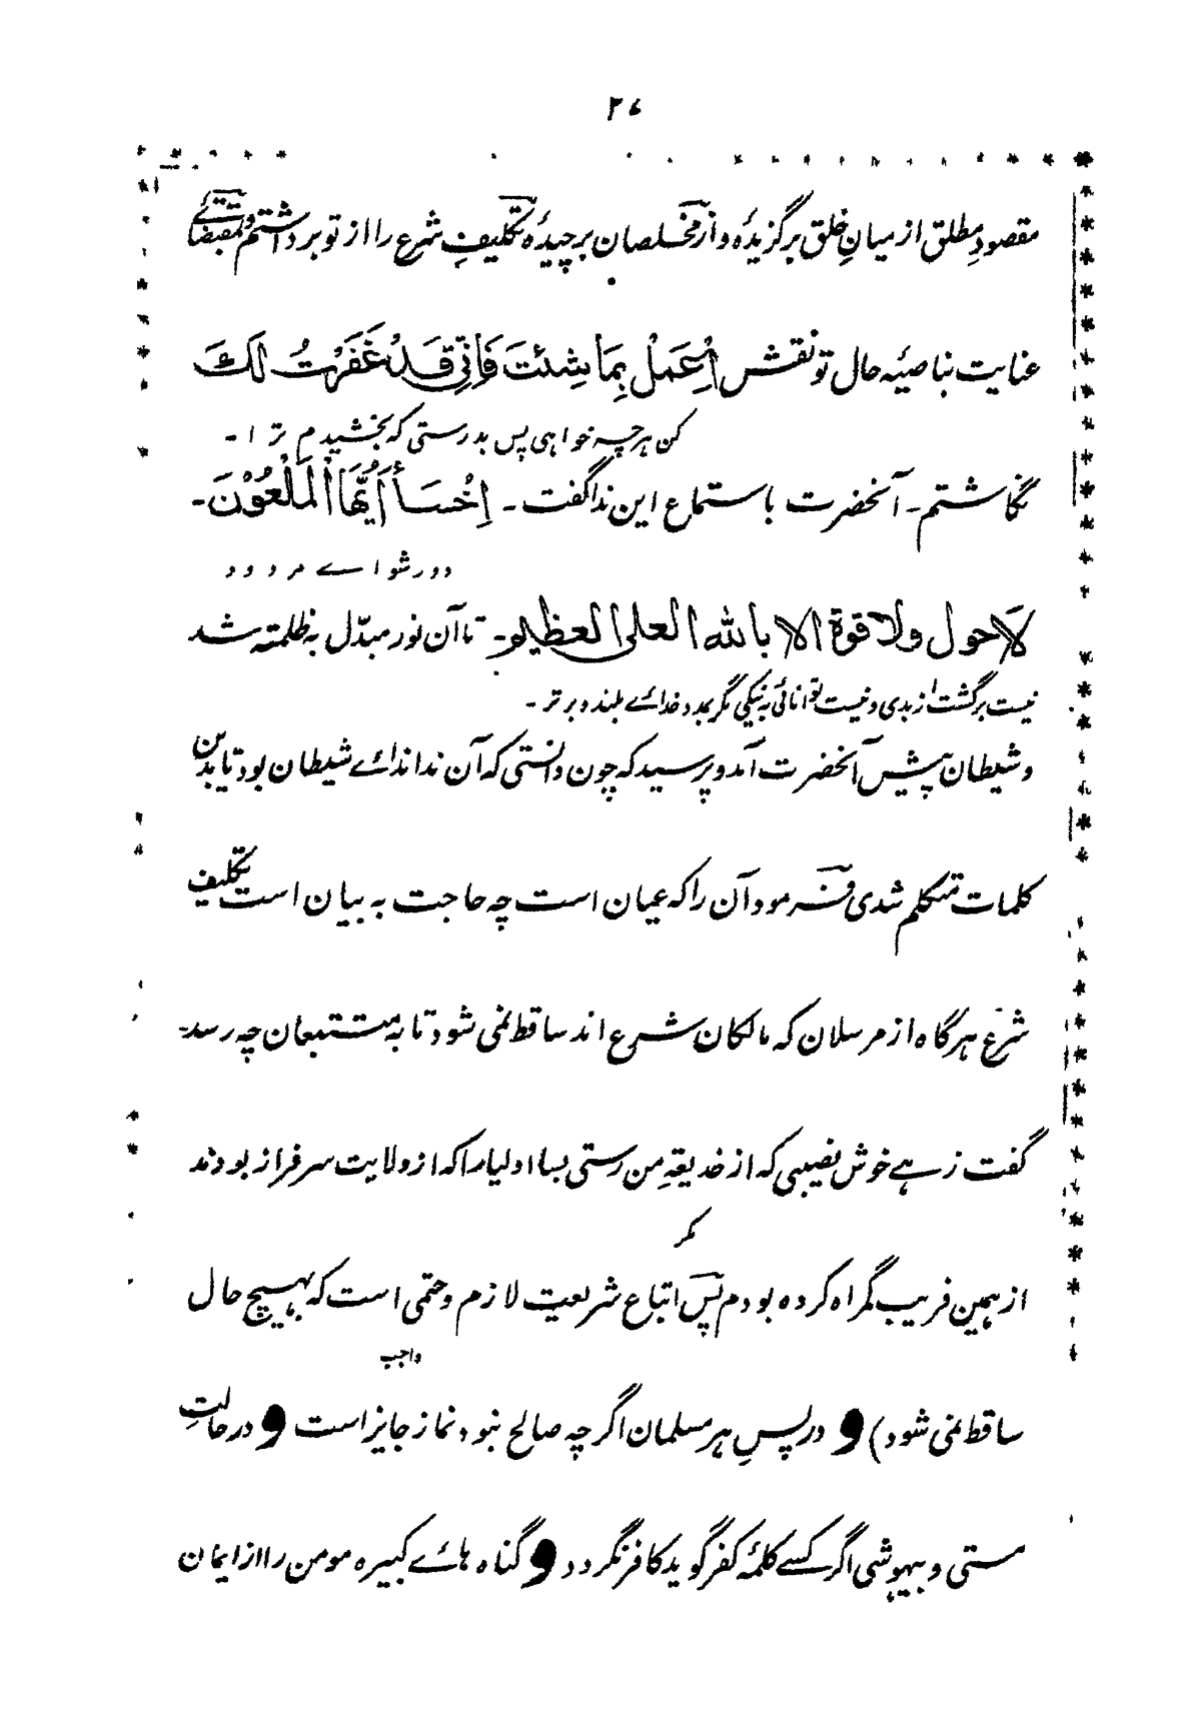 ۲۷
مقصودِ مطلق از میانِ خلق برگزیدۂ و از مخلصان برچیدۂ تکلیفِ شرع را از تو برداشتم و بمقتضائے
عنایت بناصیۂ حال تو نقش اِعْمَلْ بِمَا شِئتَ فَاِنِّی قَدْ غَفَرْتُ لَکَ
کن ہرچہ خواہی پس بدرستی کہ بخشیدم ترا۔
نگاشتم۔ آنحضرت باستماع این ندا گفت۔ اِخْسَأْ اَیُّهَا الْمَلْعُوْنَ۔
دور شو اے مردود
لَاحول ولا قوة الا بالله العلی العظیم۔ تا آن نور مبدّل بہ ظلمتہ شد
نیست برگشت از بدی و نیست توانائی بہ نیکی مگر بمدد خدائے بلند و برتر۔
و شیطان پیشِ آنحضرت آمد و پرسید کہ چون دانستی کہ آن ندا ندائے شیطان بود تا بدین
کلمات متکلم شدی فرمود آن را کہ عیان است چہ حاجت بہ بیان است تکلیفِ
شرع ہرگاہ از مرسلان کہ مالکان شرع اند ساقط نمی شود تا بہ متتبعان چہ رسد۔
گفت زہے خوش نصیبی کہ از خدیعۂِ من رستی بسا اولیا را کہ از ولایت سرفراز بودند
مکر
از ہمین فریب گمراہ کردہ بودم پس اتباع شریعت لازم و حتمی است کہ بہیچ حال
واجب
ساقط نمی شود) و در پسِ ہر مسلمان اگرچہ صالح نبود نماز جایز است و در حالتِ
مستی و بیہوشی اگر کسے کلمۂ کفر گوید کافر نگردد و گناہ ہائے کبیرہ مومن را از ایمان